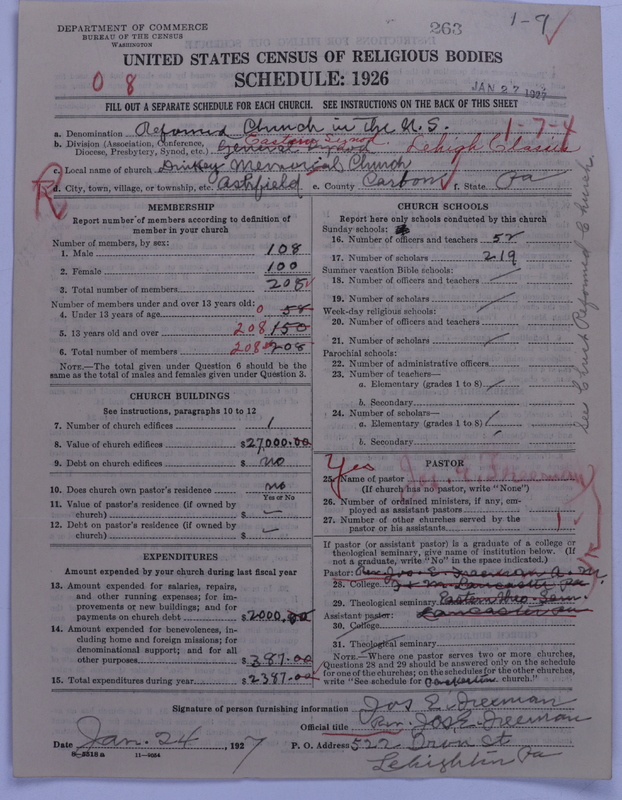 DEPARTMENT OF COMMERCE
BUREAU OF THE CENSUS
WASHINGTON
263
1-9
UNITED STATES CENSUS OF RELIGIOUS BODIES
SCHEDULE: 1926
0 8
JAN 27 1927
FILL OUT A SEPARATE SCHEDULE FOR EACH CHURCH. SEE INSTRUCTIONS ON THE BACK OF THIS SHEET
a. Denomination Reformed Church in the U.S. 1-7-4
b. Division (Association, Conference, Diocese, Presbytery, Synod, etc.) General Synod Eastern Synod Lehigh Classis
c. Local name of church Dinkey Memorial Church
d. City, town, village, or township, etc. Ashfield e. County Carbon f. State Pa
MEMBERSHIP
Report number of members according to definition of
member in your church
Number of members, by sex:
1. Male 108
2. Female 100
3. Total number of members 208
Number of members under and over 13 years old:
4. Under 13 years of age 0 58
5. 13 years old and over 208 150
6. Total number of members 208 208
NOTE.—The total given under Question 6 should be
same as the total of males and females given under Question 3.
CHURCH BUILDINGS
See instructions, paragraphs 10 to 12
7. Number of church edifices 1
8. Value of church edifices $27,000.00
9. Debt on church edifices $ no
10. Does church own pastor's residence no
Yes or No
11. Value of pastor's residence (if owned by
church) $ —
12. Debt on pastor's residence (if owned by
church) $ —
EXPENDITURES
Amount expended by your church during last fiscal year
13. Amount expended for salaries, repairs,
and other running expenses; for im-
provements or new buildings; and for
payments on church debt $2000.00
14. Amount expended for benevolences, in-
cluding home and foreign missions; for
denominational support; and for all
other purposes $387.00
15. Total expenditures during year $2387.00
CHURCH SCHOOLS
Report here only schools conducted by this church
Sunday schools:
16. Number of officers and teachers 52
17. Number of scholars 219
Summer vacation Bible schools:
18. Number of officers and teachers
19. Number of scholars
Week-day religious schools:
20. Number of officers and teachers
21. Number of scholars
Parochial schools:
22. Number of administrative officers
23. Number of teachers—
a. Elementary (grades 1 to 8)
b. Secondary
24. Number of scholars—
a. Elementary (grades 1 to 8)
b. Secondary
See Church Reformed Church.
PASTOR
Yes
25. Name of pastor Jos. E. Freeman
(If church has no pastor, write "None")
26. Number of ordained ministers, if any, em-
ployed as assistant pastors
27. Number of other churches served by the
pastor or his assistants 1
If pastor (or assistant pastor) is a graduate of a college or
theological seminary, give name of institution below. (If
not a graduate, write "No" in the space indicated.)
Pastor: Rev. Jos E. Freeman A.M.
28. College F & M Lancaster Pa
29. Theological seminary Eastern Theo. Sem.
Assistant pastor: Lancaster Pa
30. College
31. Theological seminary
NOTE.—Where one pastor serves two or more churches,
Questions 28 and 29 should be answered only on the schedule
for one of the churches; on the schedules for the other churches,
write "See schedule for church."
Signature of person furnishing information Jos E. Freeman
Official title Rev. Jos E. Freeman
Date Jan. 24, 1927 P. O. Address 522 Iron St
Lehighton Pa
8-5318a 11-9064